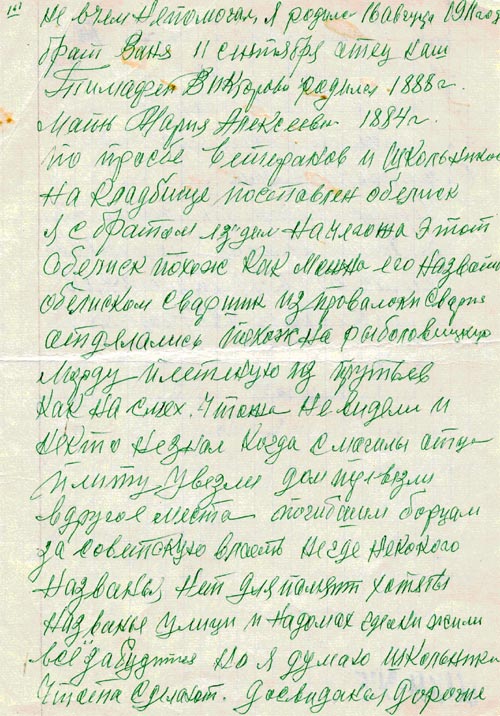 не в чем непомогал, я родилс 16 августа 1911 года
брат Ваня 11 сентября отец наш
Тимафей родился 1888 г.
Мать Мария Алексеевн 1884 г.
по просбе ветеранов и школьников
на кладбище поставлен обелиск
я с братом ездил на этот
обелиск похож как можна его назвать
обелиском сварщик из проволоки сварил
отделались похож на
морду плетеную из прутьев
как на смех. не видели и
некто незнал когда с могилы отца
плиту увезли дом первезли
вдругое места погибшим борцам
за советскую власть негде некокого
названья нет для памяти хотябы
названье улици и надомах где они жили
всё забудится но я думаю школьники
сделают. досвидания дорогие